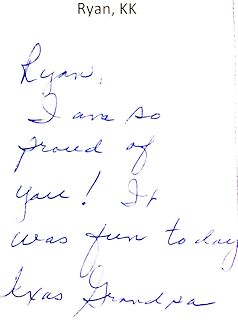 Ryan, KK
Ryan,
I am so
proud of
you! It
was fun today
Texas Grandpa